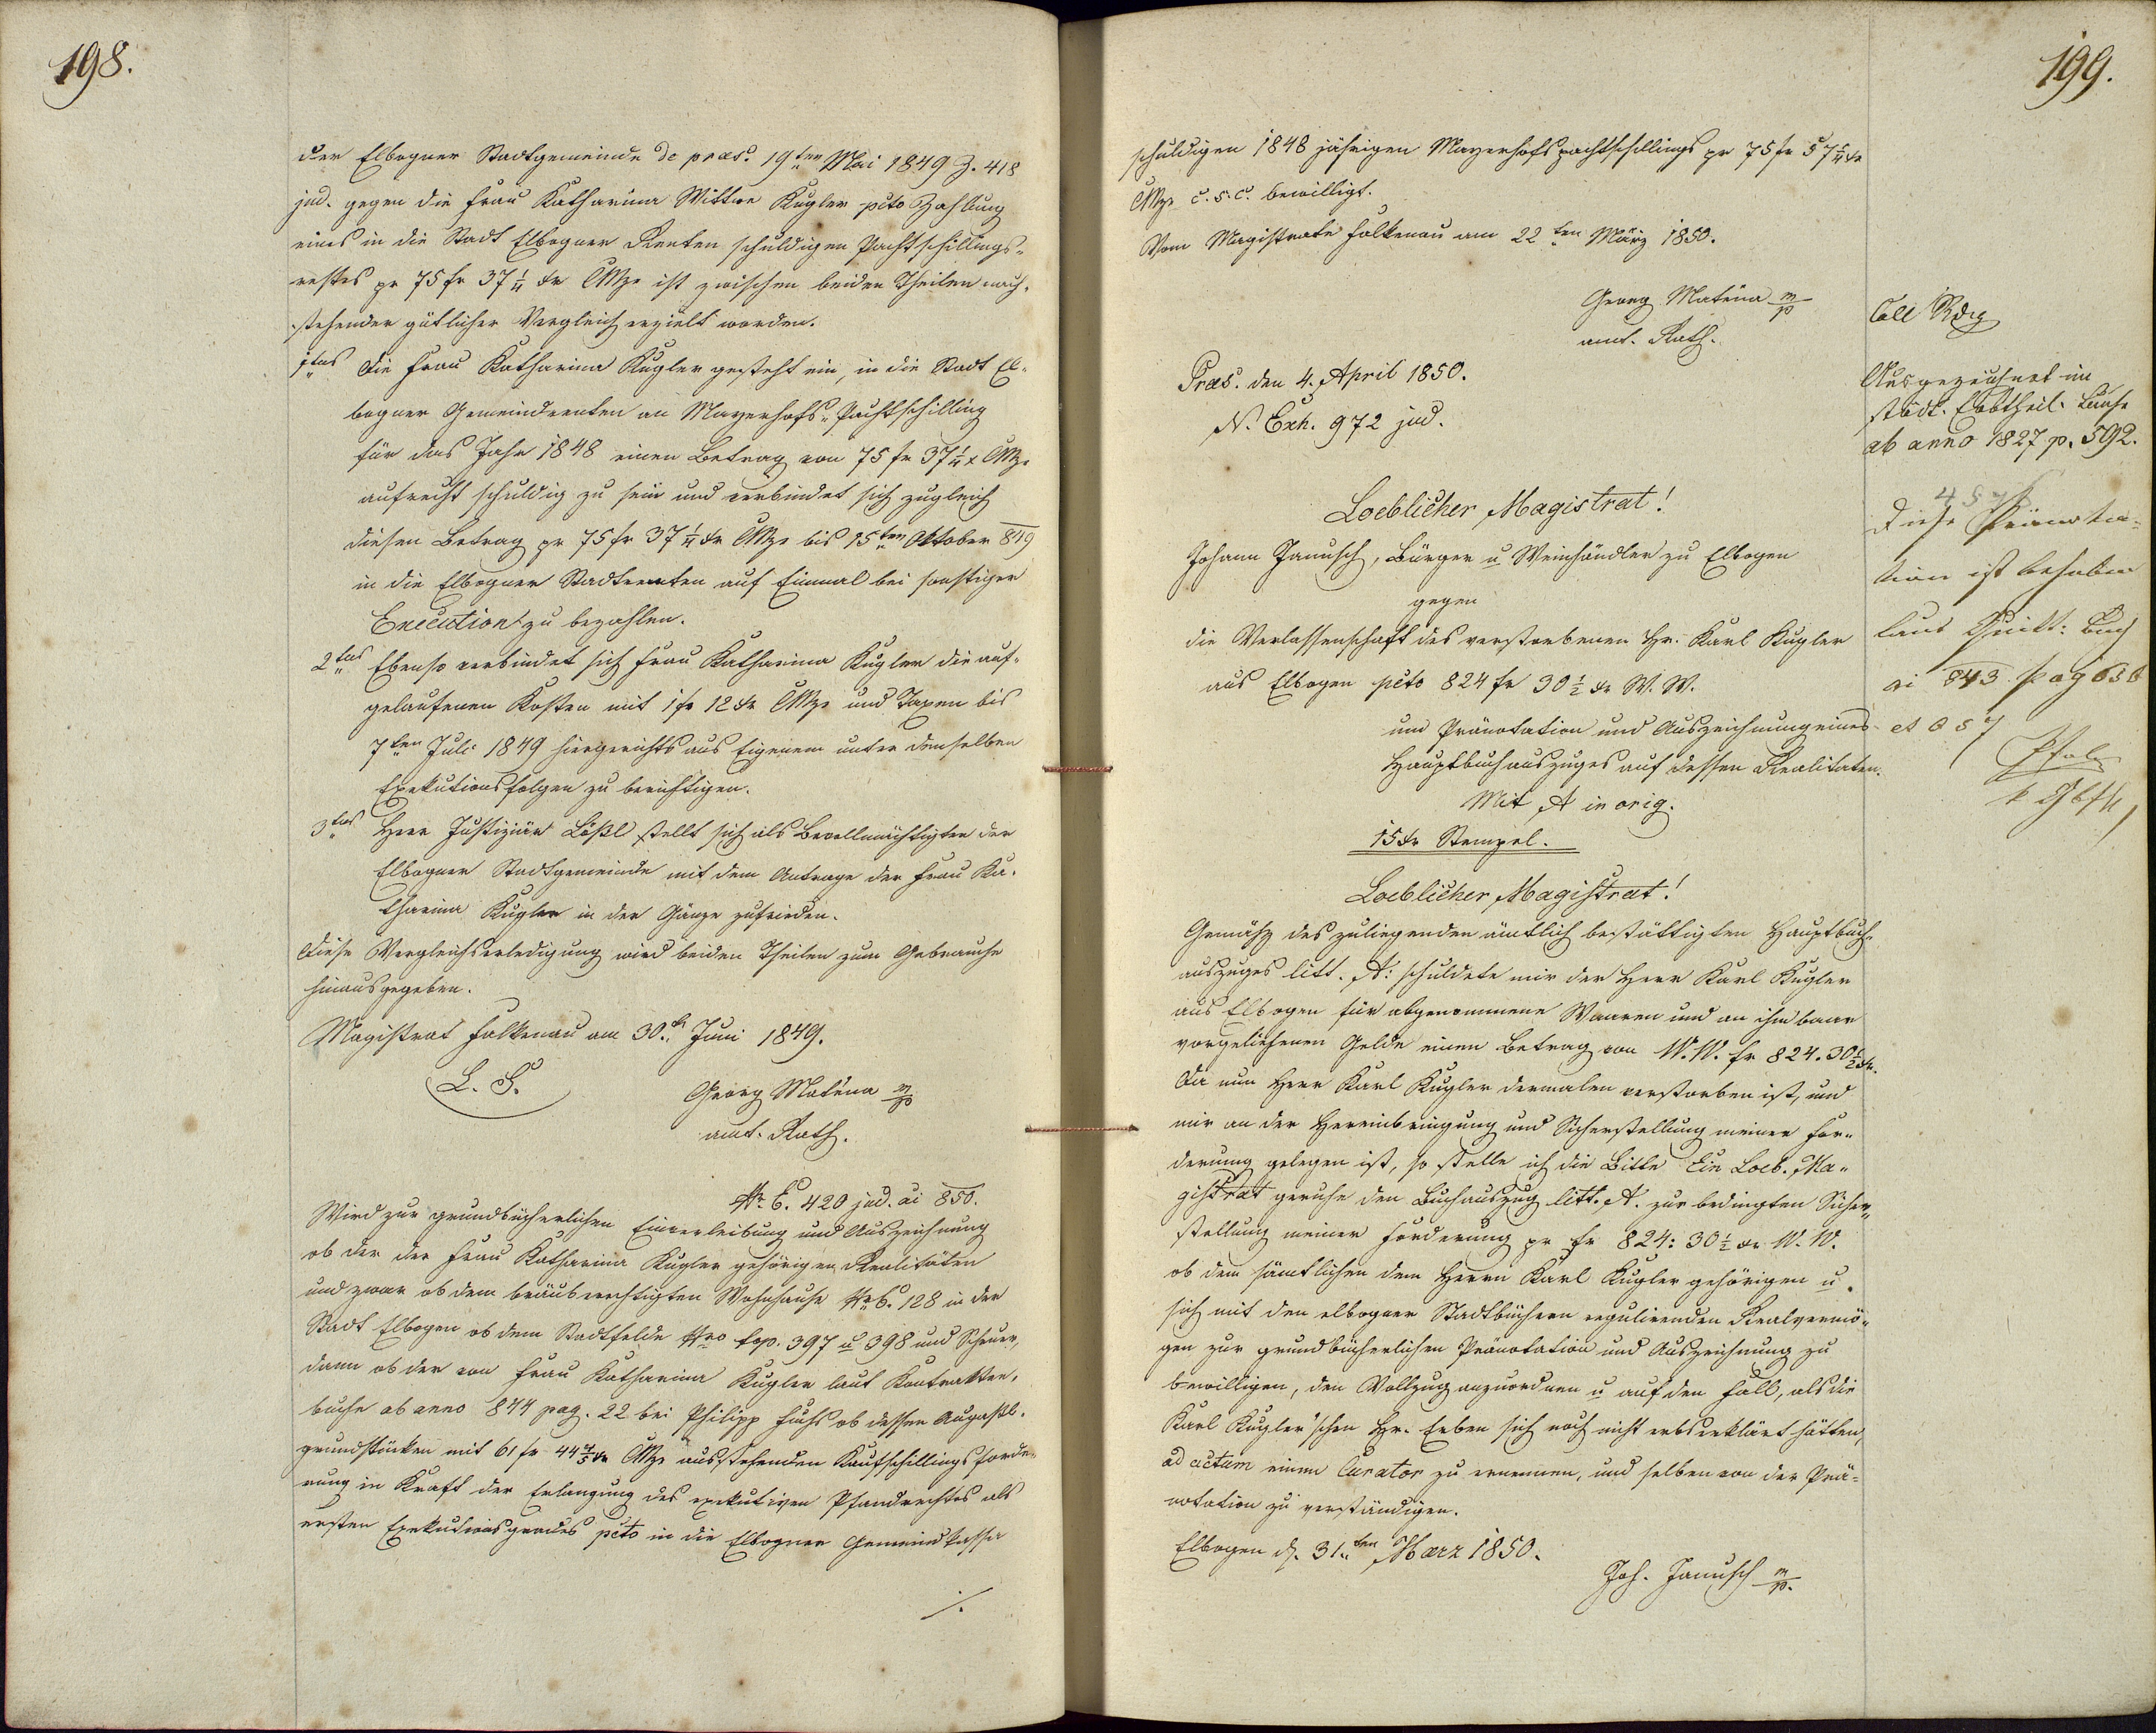 198.
der Elbogner Stadtgemeinde de praes. 19ten Mai 1849 Z. 418
jud. gegen die Frau Katharina Wittwe Kugler pcto Zahlung
eines in die Stadt Elbogner Renten schuldigen Pachtschillings-
restes pr 75 fr 37 1/4 xr CMze ist zwischen beiden Theilen nach-
stehender gütlicher Vergleich erzielt worden.
1tens Die Frau Katharina Kugler gesteht ein, in die Stadt El-
bogner Gemeindrenten an Mayerhofs-Pachtschilling
für das Jahr 1848 einen Betrag von 75 fr 37 1/4 x CMze
aufrecht schuldig zu sein und verbindet sich zugleich
diesen Betrag pr 75 fr 37 1/4 xr CMze bis 15ten Oktober 849
in die Elbogner Stadtrenten auf Einmal bei sonstiger
Execution zu bezahlen.
2tens Ebenso verbindet sich Frau Katharina Kugler die auf-
gelaufenen Kosten mit 1 fr 12 xr CMze und Taxen bis
7ten Juli 1849 hiergerichts aus Eigenem unter denselben
Exekutionsfolgen zu berichtigen.
3tens Herr Justiziär Lößl stellt sich als Bevollmächtigter der
Elbogner Stadtgemeinde mit dem Antrage der Frau Ka-
tharina Kugler in der Gänze zufrieden.
Diese Vergleichserledigung wird beiden Theilen zum Gebrauche
hinausgegeben.
Magistrat Falkenau am 30. Juni 1849.
L. S.
Georg Maténa m/p
amt. Rath.
Nr. E. 420 jud. ai 850.
Wird zur grundbücherlichen Einverleibung und Auszeichnung
ob der der Frau Katharina Kugler gehörigen Realitäten
und zwar ob dem bräuberechtigten Wohnhause Nr C. 128 in der
Stadt Elbogen ob dem Stadtfelde Nro top. 397 u 398 und Scheuer,
dann ob der von Frau Katharina Kugler laut Kontrakten-
buche ab anno 844 pag. 22 bei Philipp Fuchs ob dessen
grundstücken mit 61 fr 44 4/5 xr CMze ausstehenden Kaufschillingsforde-
rung in Kraft der Erlangung des exekutiven Pfandrechtes als
ersten Exekutionsgrades pcto in die Elbogner Gemeindkasse
./.
199.
schuldigen 1848 jährigen Mayerhofspachtschillings pr 75 fr 37 1/4 xr
CMze c. s. c. bewilligt.
Vom Magistrate Falkenau am 22ten März 1850.
Georg Maténa m/p
amt. Rath.
Praes. den 4. April 1850.
N. Exh. 972 jud.
Loeblicher Magistrat!
Johann Janusch, Bürger u Weinhändler zu Elbogen
gegen
die Verlassenschaft des verstorbenen Hr. Karl Kugler
aus Elbogen pcto 824 fr 30 1/2 xr W. W.
um Pränotation und Auszeichnung eines
Hauptbuchauszuges auf dessen Realitaten.
Mit A in orig.
15 xr Stempel.
Loeblicher Magistrat!
Gemäß des zuliegenden ämtlich bestättigten Hauptbuch-
auszuges litt. A: schuldete mir der Herr Karl Kugler
aus Elbogen für abgenommene Waaren und an ihm baar
vorgeliehenen Gelde einen Betrag von W. W. fr 824. 30 1/2 xr.
Da nun Herr Karl Kugler dermalen verstorben ist, und
mir an der Hereinbringung und Sicherstellung meiner For-
derung gelegen ist, so stelle ich die Bitte Ein Loeb. Ma-
gistrat geruhe den Buchauszug litt. A. zur bedingten Sicher-
stellung meiner Forderung pr fr 824: 30 1/2 xr W. W.
ob dem sämtlichen dem Herrn Karl Kugler gehörigen u
sich mit den elbogner Stadtbüchern regulirenden Realvermö-
gen zur grundbücherlichen Pränotation und Auszeichnung zu
bewilligen, den Vollzug anzuordnen u auf den Fall, als die
Karl Kugler'schen Hr. Erben sich noch nicht erbserklärt hätten,
ad actum einen Curator zu ernennen, und selben von der Prä-
notation zu verständigen.
Elbogen d. 31ten Maerz 1850.
Joh. Janusch m/p.
Coll
Ausgezeichnet im
städt. Buche
ab anno 1827 p. 592.
Diese Pränota-
tion ist behoben
laut Quitt: Buch
ai 843 pag 636
et 657